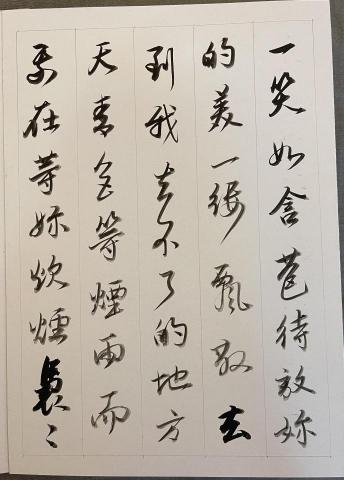 一笑如含苞待放妳
的美一縷飄散去
到我去不了的地方
天青色等煙雨而
我在等妳炊煙裊〻